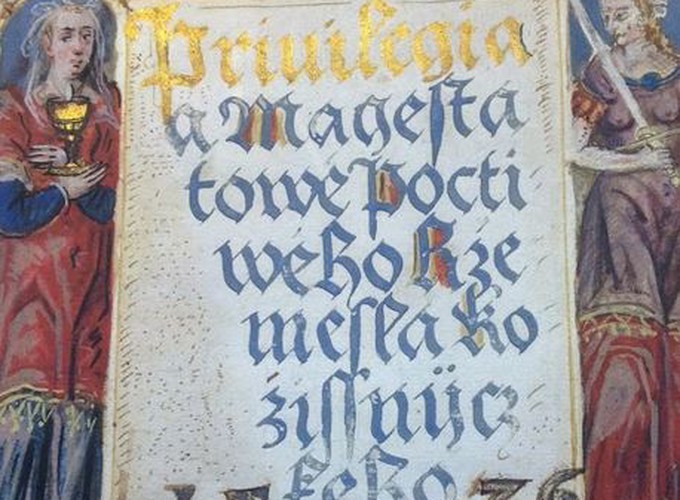 Priuilegia
a Mageſta
towé Pocti
wého Rze
meſła Ko
žiſſnijcz
keho